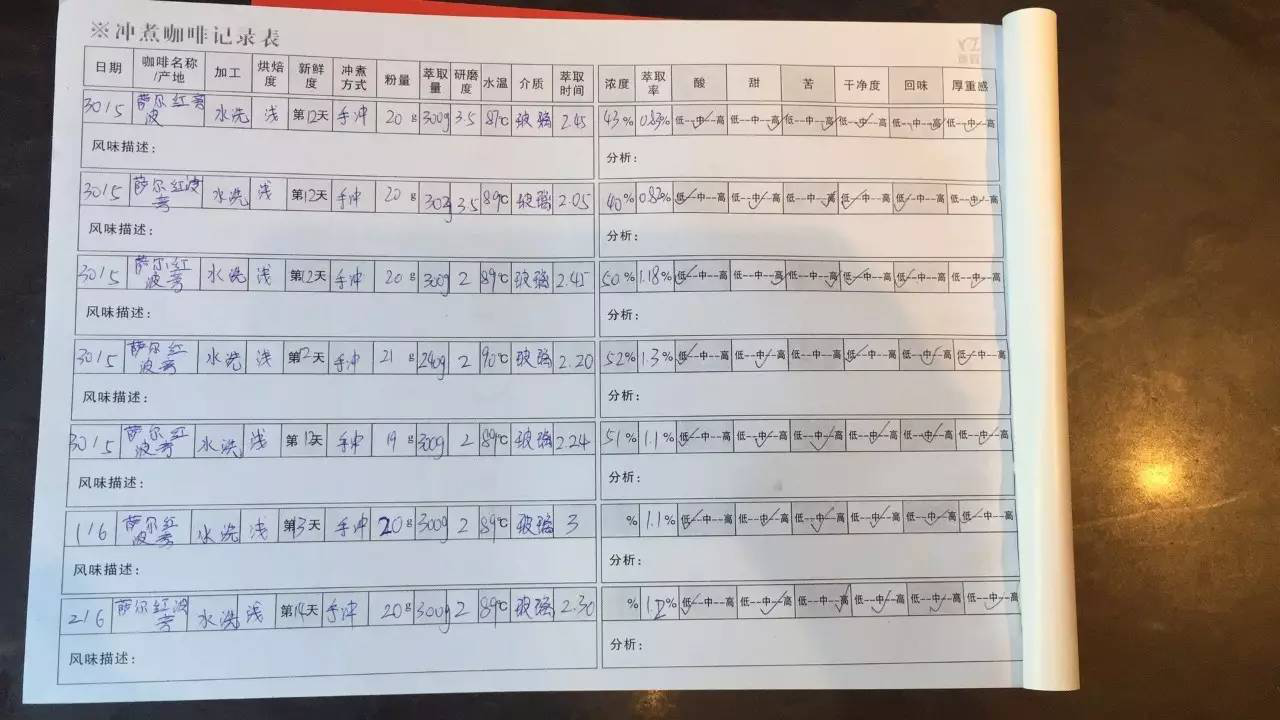 ※冲煮咖啡记录表
日期 咖啡名称/产地 加工 烘焙度 新鲜度 冲煮方式 粉量 萃取量 研磨度 水温 介质 萃取时间 浓度 萃取率 酸 甜 苦 干净度 回味 厚重感
3015 萨尔红旁波 水洗 浅 第12天 手冲 20g 300g 3.5 87℃ 玻璃 2.45 43% 0.83% 低--中--高 低--中--高 低--中--高 低--中--高 低--中--高 低--中--高
风味描述: 分析:
3015 萨尔红波旁 水洗 浅 第12天 手冲 20g 302g 3.5 89℃ 玻璃 2.05 40% 0.82% 低--中--高 低--中--高 低--中--高 低--中--高 低--中--高 低--中--高
风味描述: 分析:
3015 萨尔红波旁 水洗 浅 第12天 手冲 20g 300g 2 89℃ 玻璃 2.45 50% 1.18% 低--中--高 低--中--高 低--中--高 低--中--高 低--中--高 低--中--高
风味描述: 分析:
3015 萨尔红波旁 水洗 浅 第12天 手冲 21g 240g 2 90℃ 玻璃 2.20 52% 1.3% 低--中--高 低--中--高 低--中--高 低--中--高 低--中--高 低--中--高
风味描述: 分析:
3015 萨尔红波旁 水洗 浅 第12天 手冲 19g 300g 2 89℃ 玻璃 2.24 51% 1.1% 低--中--高 低--中--高 低--中--高 低--中--高 低--中--高 低--中--高
风味描述: 分析:
116 萨尔红波旁 水洗 浅 第13天 手冲 20g 300g 2 89℃ 玻璃 3 % 1.1% 低--中--高 低--中--高 低--中--高 低--中--高 低--中--高 低--中--高
风味描述: 分析:
216 萨尔红波旁 水洗 浅 第14天 手冲 20g 300g 2 89℃ 玻璃 2.30 % 1.2% 低--中--高 低--中--高 低--中--高 低--中--高 低--中--高 低--中--高
风味描述: 分析: